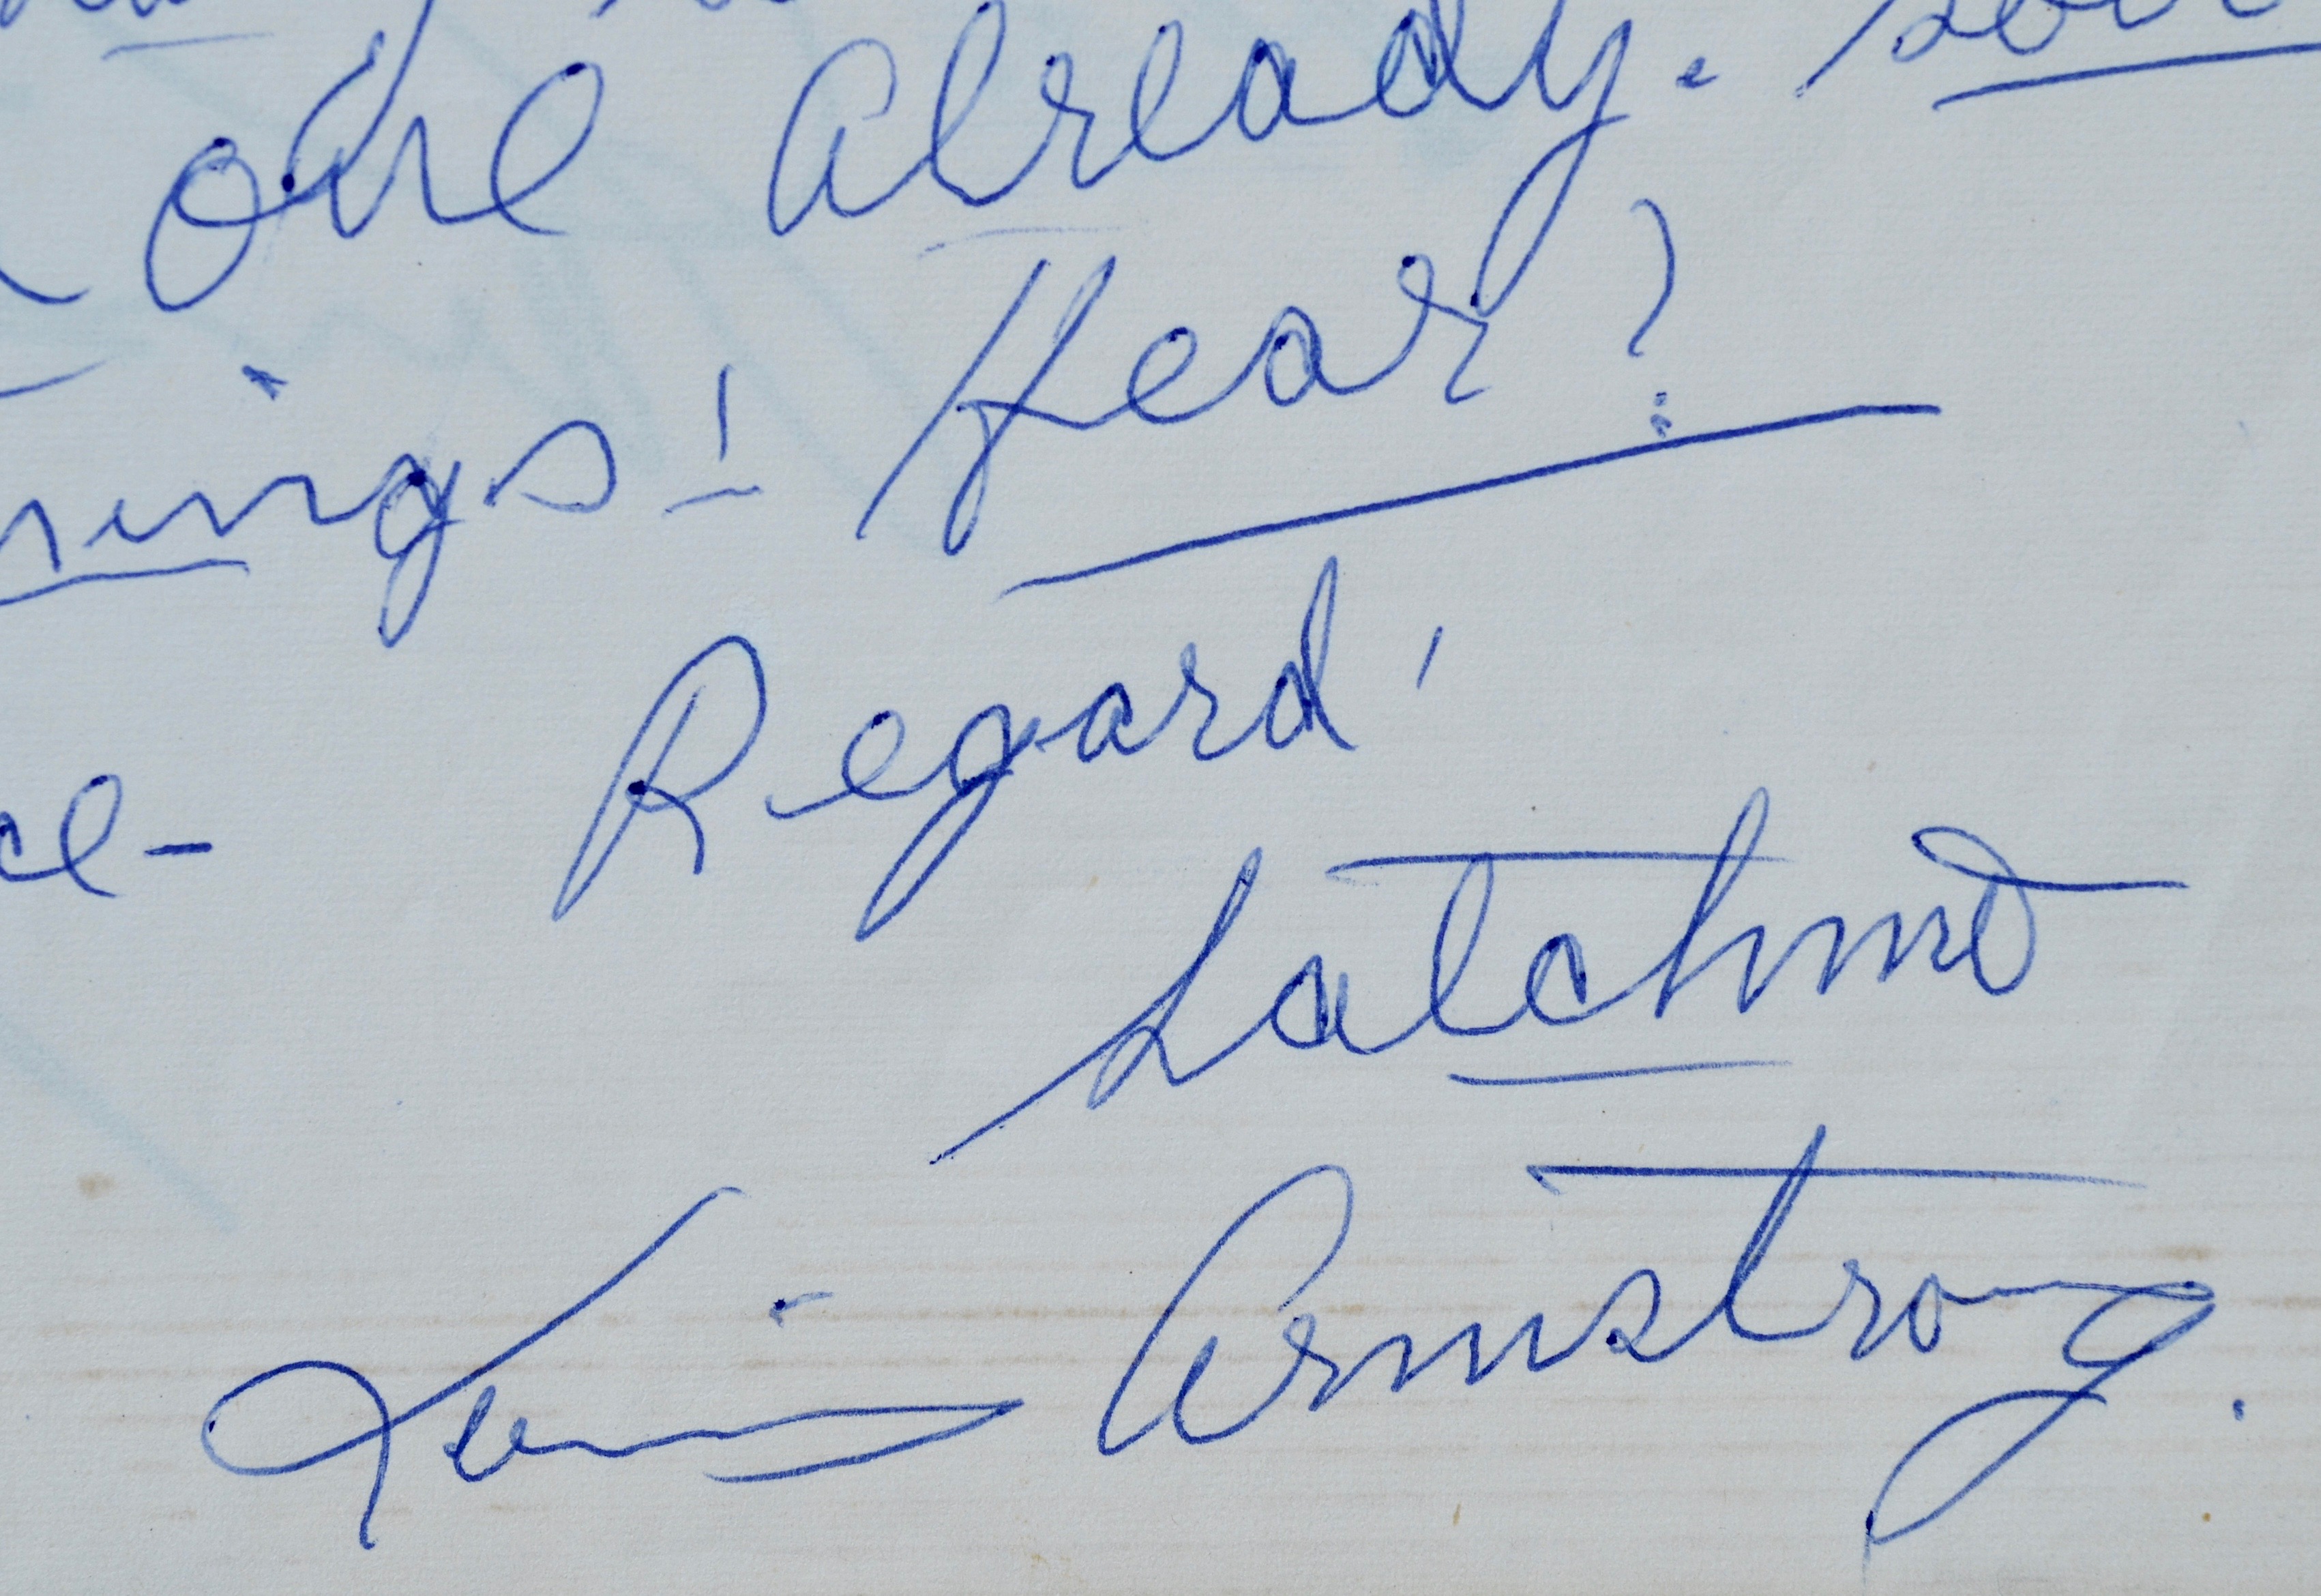 one already. soon
ings! Hear?
ce- Regard'
Satchmo
Louis Armstrong.